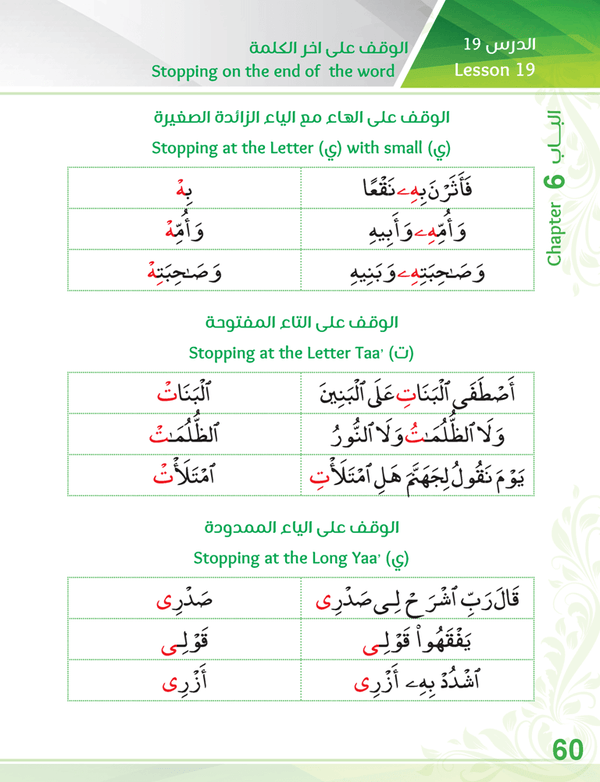 الدرس 19
Lesson 19
الوقف على اخر الكلمة
Stopping on the end of the word
الباب
Chapter 6
الوقف على الهاء مع الياء الزائدة الصغيرة
Stopping at the Letter (ي) with small (ي)
فَأَثَرْنَ بِهِۦ نَقْعًا بِهْ
وَأُمِّهِۦ وَأَبِيهِ وَأُمِّهْ
وَصَـٰحِبَتِهِۦ وَبَنِيهِ وَصَـٰحِبَتِهْ
الوقف على التاء المفتوحة
Stopping at the Letter Taa’ (ت)
أَصْطَفَى ٱلْبَنَاتِ عَلَى ٱلْبَنِينَ ٱلْبَنَاتْ
وَلَا ٱلظُّلُمَـٰتُ وَلَا ٱلنُّورُ ٱلظُّلُمَـٰتْ
يَوْمَ نَقُولُ لِجَهَنَّمَ هَلِ ٱمْتَلَأْتِ ٱمْتَلَأْتْ
الوقف على الياء الممدودة
Stopping at the Long Yaa’ (ي)
قَالَ رَبِّ ٱشْرَحْ لِى صَدْرِى صَدْرِى
يَفْقَهُوا۟ قَوْلِى قَوْلِى
ٱشْدُدْ بِهِۦ أَزْرِى أَزْرِى
60